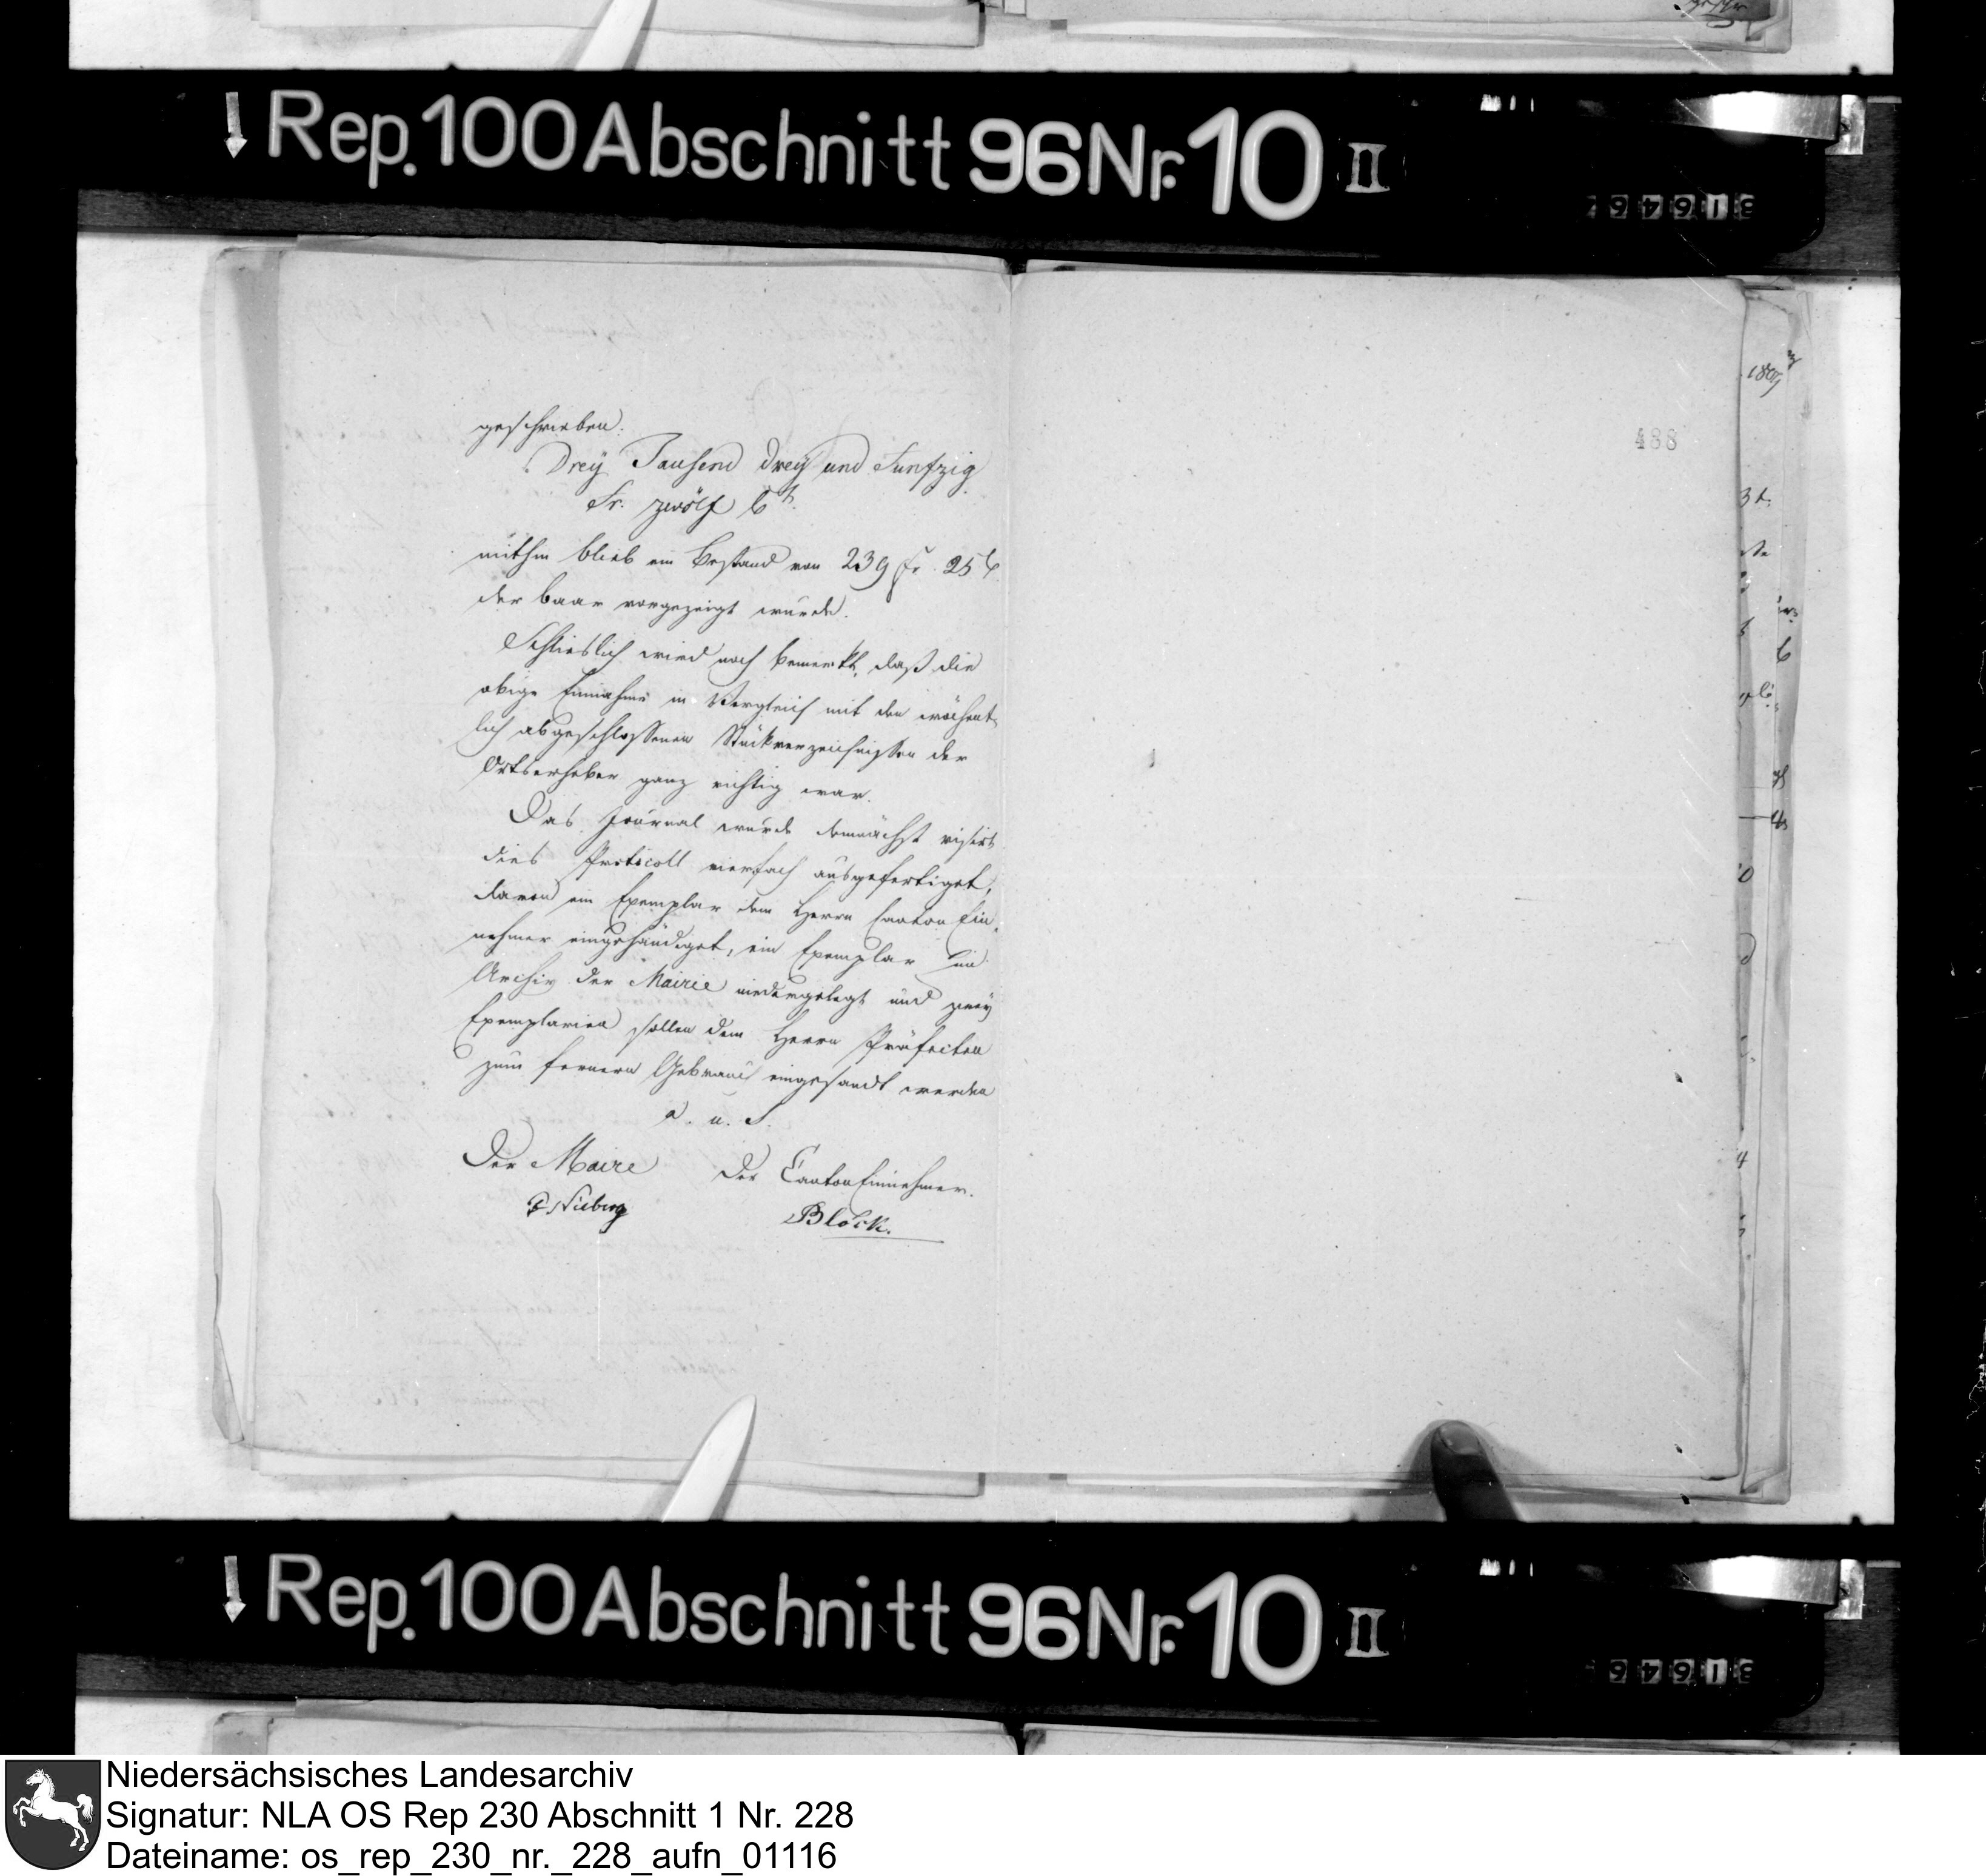 Rep. 100 Abschnitt 96 Nr. 10 II
31646
geschrieben.
Drey Tausend drey und Funfzig
Fr. zwölf Ct.
mithin blieb ein Bestand von 239 Fr. 25 C.
der baar vorgezeigt wurde.
Schlieslich wird noch bemerkt, daß die
obige Einnahme in Vergleich mit den wöchent-
lich abgeschlossenen Stückverzeichnissen der
Ortserheber ganz richtig war.
Das Journal wurde demnächst visirt
dies Protocoll vierfach ausgefertiget,
davon ein Exemplar dem Herrn Canton Ein-
nehmer eingehändiget, ein Exemplar im
Archiv der Mairie niedergelegt und zwey
Exemplarien sollen dem Herrn Präfecten
zum fernern Gebrauch eingesandt werden
a. u. S.
Der Maire
Der Canton Einnehmer.
Nieberg
Block.
488
Rep. 100 Abschnitt 96 Nr. 10 II
31646
Niedersächsisches Landesarchiv
Signatur: NLA OS Rep 230 Abschnitt 1 Nr. 228
Dateiname: os_rep_230_nr._228_aufn_01116